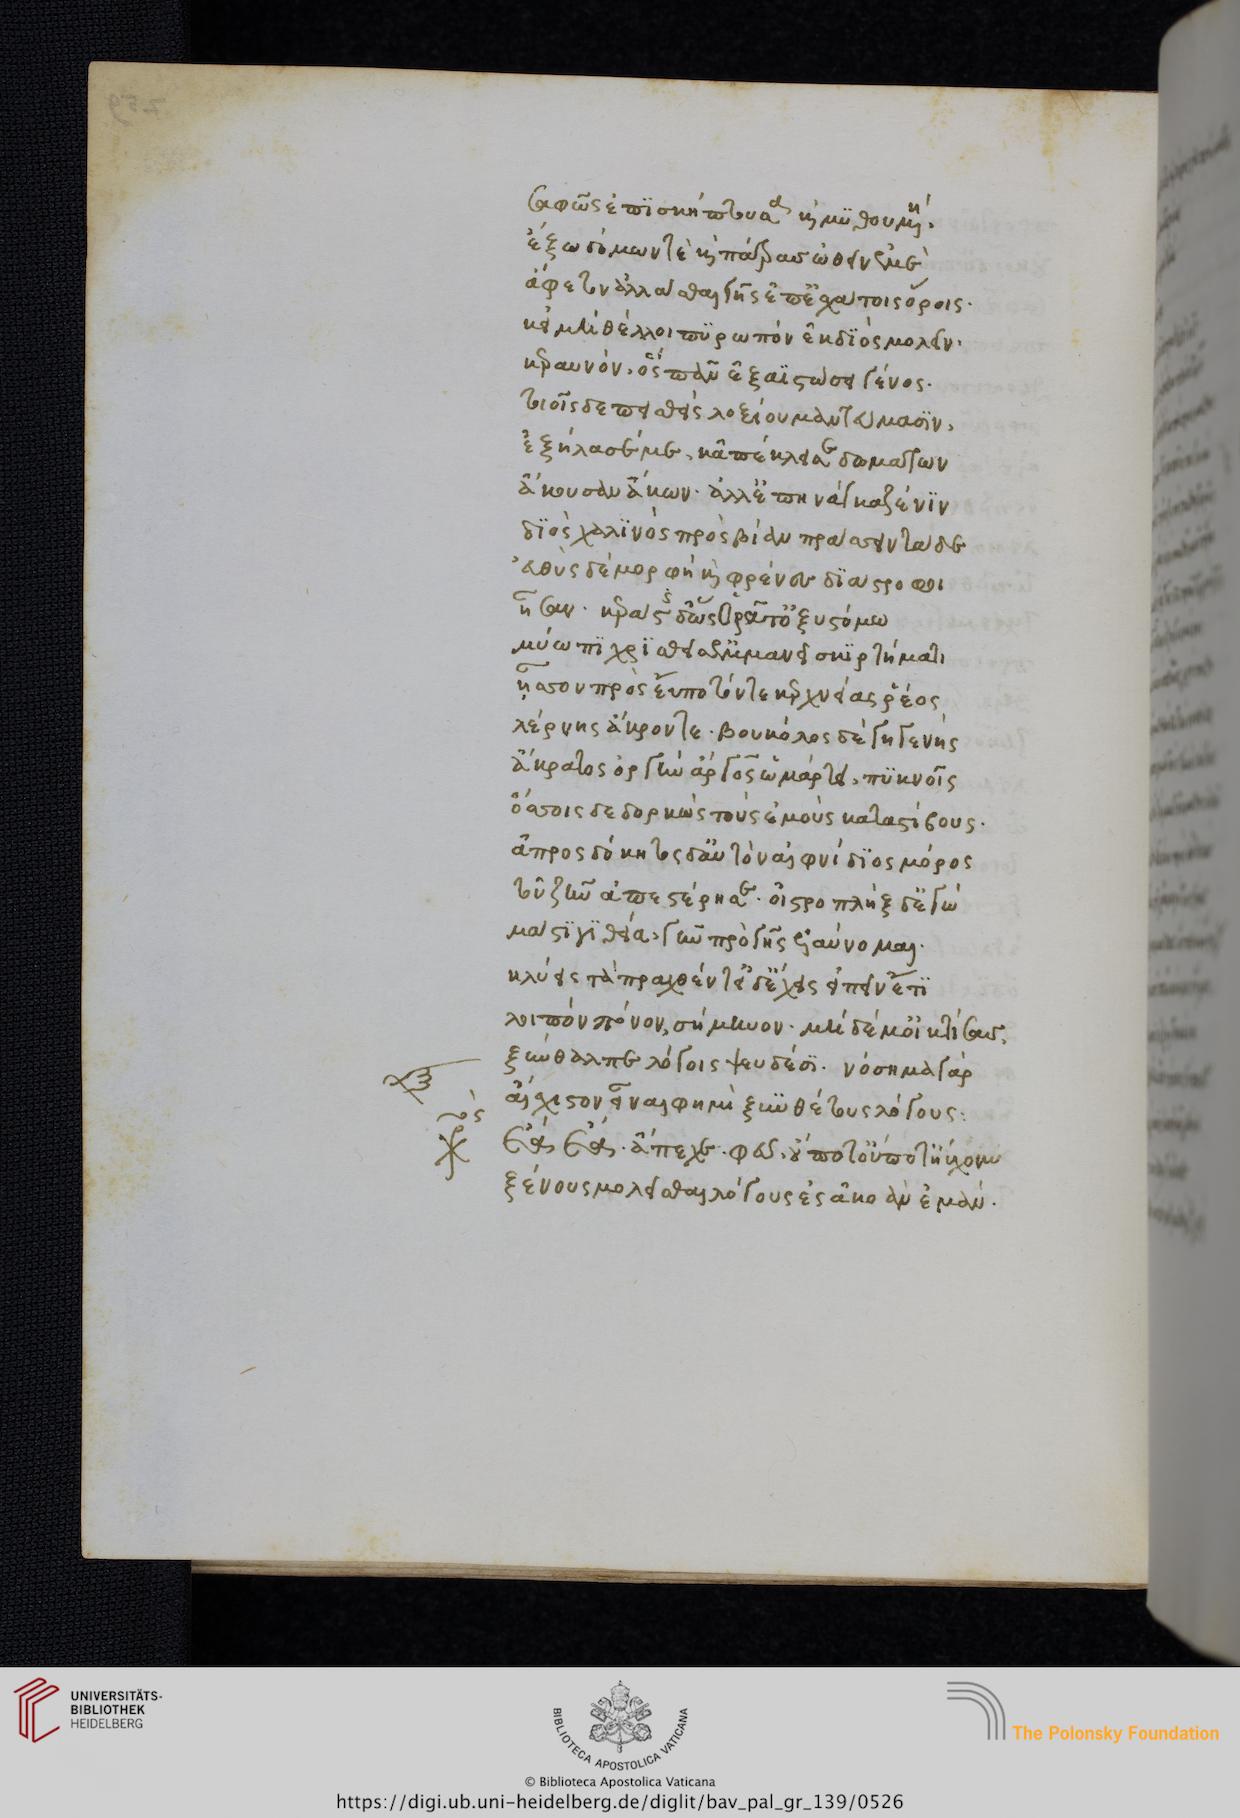 σαφῶς ἐπισκήπτουσα καὶ μυθουμένη.
ἔξω δόμων τε καὶ πάτρας ὠθεῖν ἐμέ
ἄφετον ἀλᾶσθαι γῆς ἐπ' ἐσχάτοις ὅροις.
κεἰ μὴ θέλλοι πυρωπὸν ἐκ διὸς μολεῖν.
κεραυνὸν, ὃς πᾶν ἐξαϊστώσει γένος.
τοιοῖσδε πεισθεὶς λοξίου μαντεύμασιν,
ἐξήλασέ με, κἀπέκλεισε δωμάτων
ἄκουσαν ἄκων. ἀλλ' ἐπηνάγκαζέ νιν
διὸς χαλινὸς πρὸς βίαν πράσσειν τάδε
εὐθὺς δὲ μορφὴ καὶ φρένες διάστροφοι
ἦσαν. κεραστὶς δ' ὡς ὁρᾶτ' ὀξυστόμω
μύωπι χρισθεῖσ' ἐμμανεῖ σκιρτήματι
ᾖσσον πρὸς εὔποτόν τε κερχνείας ῥέος
λέρνης ἄκρον τε. βουκόλος δὲ γηγενὴς
ἄκρατος ὀργὴν ἄργος ὡμάρτει, πυκνοῖς
ὄσσοις δεδορκὼς τοὺς ἐμοὺς κατὰ στίβους.
ἀπροσδόκητος δ' αὐτὸν αἰφνίδιος μόρος
τοῦ ζῆν ἀπεστέρησε. οἰστροπλὴξ δ' ἐγὼ
μάστιγι θεία, γῆν πρὸ γῆς ἐλαύνομαι.
κλύεις τὰ πραχθέντ' εἰ δ' ἔχεις εἰπεῖν ἔτι
λοιπὸν πόνον, σήμαινον. μὴ δέ μ' οἰκτίσας,
ξύνθαλπε λόγοις ψευδέσι. νόσημα γὰρ
αἴσχιστον εἶναι φημὶ συνθέτους λόγους:
χορὸς
ἔα ἔα. ἄπεχε. φεῦ, οὔποτ' οὔποτ' ηὔχουν
ξένους μολεῖσθαι λόγους ἐς ἀκοὰν ἐμὰν.
259
UNIVERSITÄTS-
BIBLIOTHEK
HEIDELBERG
BIBLIOTECA APOSTOLICA VATICANA
The Polonsky Foundation
© Biblioteca Apostolica Vaticana
https://digi.ub.uni-heidelberg.de/diglit/bav_pal_gr_139/0526